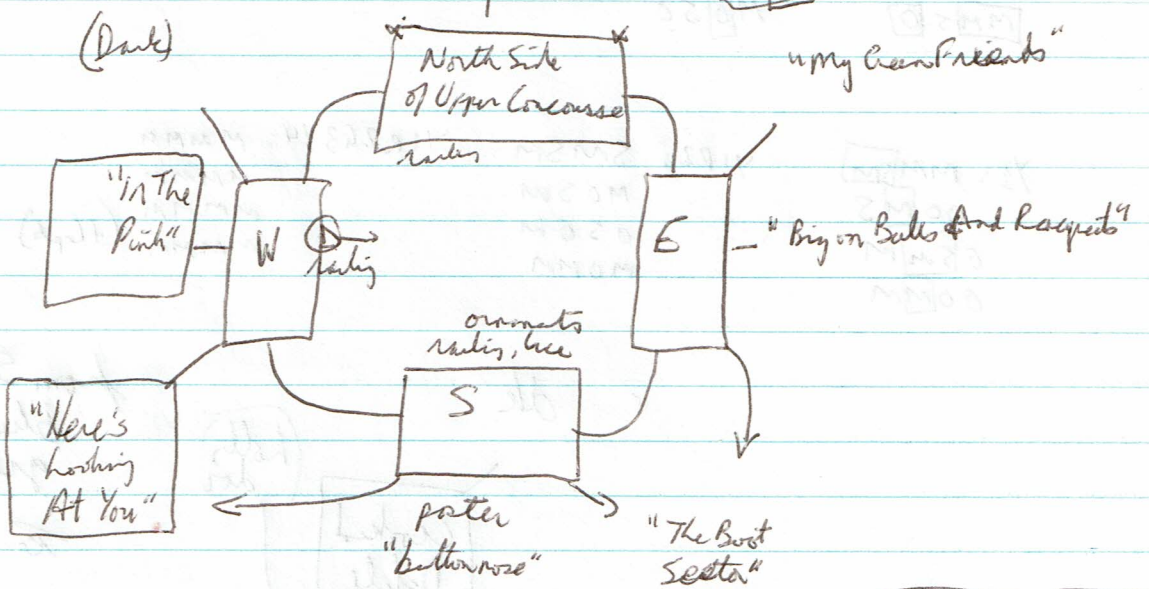 (Dark)
North Side
of Upper Concourse
railing
"My Green Friends"
"In The
Pink"
W
railing
E
"Big on Balls And Racquets"
ornate
railing, here
S
"Here's
Looking
At You"
poster
"buttonnose"
"The Boot
Sector"